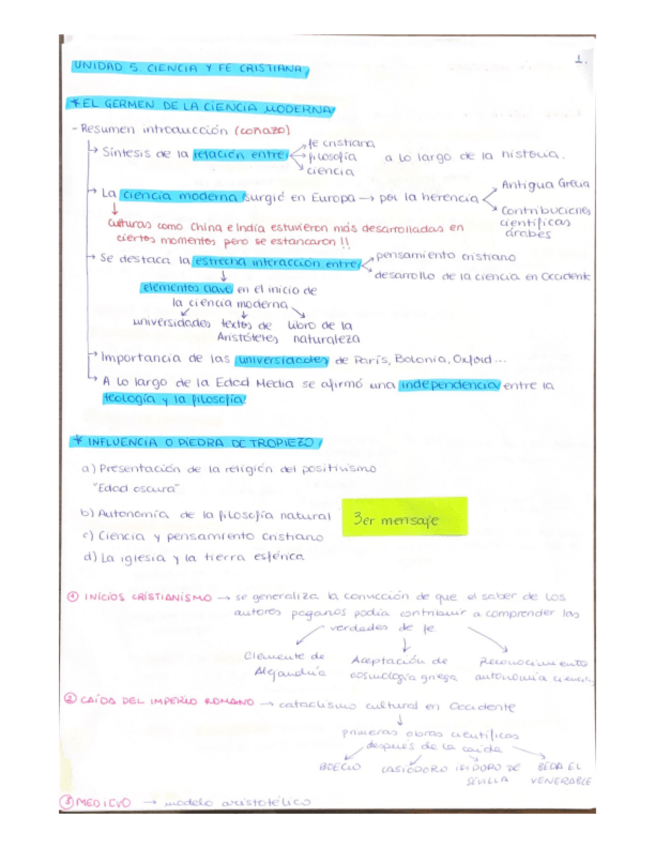 1.
UNIDAD 5. CIENCIA Y FE CRISTIANA
* EL GERMEN DE LA CIENCIA MODERNA
- Resumen introducción (coñazo)
→ Síntesis de la relación entre fe cristiana
filosofía a lo largo de la historia.
ciencia
→ La ciencia moderna surgió en Europa → por la herencia Antigua Grecia
Contribuciones
científicas
árabes
↓
Culturas como China e India estuvieron más desarrolladas en
ciertos momentos pero se estancaron !!
→ Se destaca la estrecha interacción entre pensamiento cristiano
desarrollo de la ciencia en Occidente
↓
elementos clave en el inicio de
la ciencia moderna
universidades textos de libro de la
Aristóteles naturaleza
→ Importancia de las universidades de París, Bolonia, Oxford...
→ A lo largo de la Edad Media se afirmó una independencia entre la
teología y la filosofía
* INFLUENCIA O PIEDRA DE TROPIEZO
a) Presentación de la religión del positivismo
"Edad oscura"
b) Autonomía de la filosofía natural
3er mensaje
c) Ciencia y pensamiento cristiano
d) La iglesia y la tierra esférica
① INICIOS CRISTIANISMO → se generaliza la convicción de que el saber de los
autores paganos podía contribuir a comprender las
verdades de fe
Clemente de Aceptación de Reconocimiento
Alejandría cosmología griega autonomía
② CAÍDA DEL IMPERIO ROMANO → cataclismo cultural en Occidente
↓
primeras obras científicas
después de la caída
BOECIO CASIODORO ISIDORO DE BEDA EL
SEVILLA VENERABLE
③ MEDIEVO → modelo aristotélico